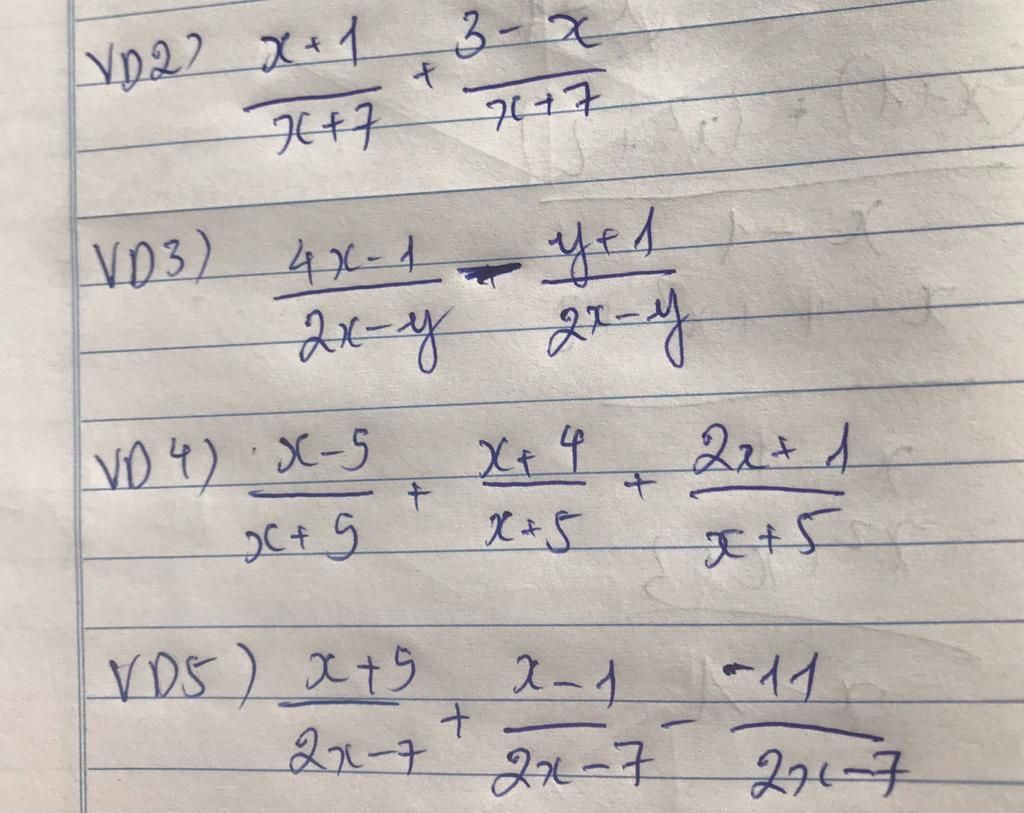 VD2) (x+1)/(x+7) + (3-x)/(x+7)
VD3) (4x-1)/(2x-y) - (y+1)/(2x-y)
VD4) (x-5)/(x+5) + (x+4)/(x+5) + (2x+1)/(x+5)
VD5) (x+5)/(2x-7) + (x-1)/(2x-7) - (-11)/(2x-7)